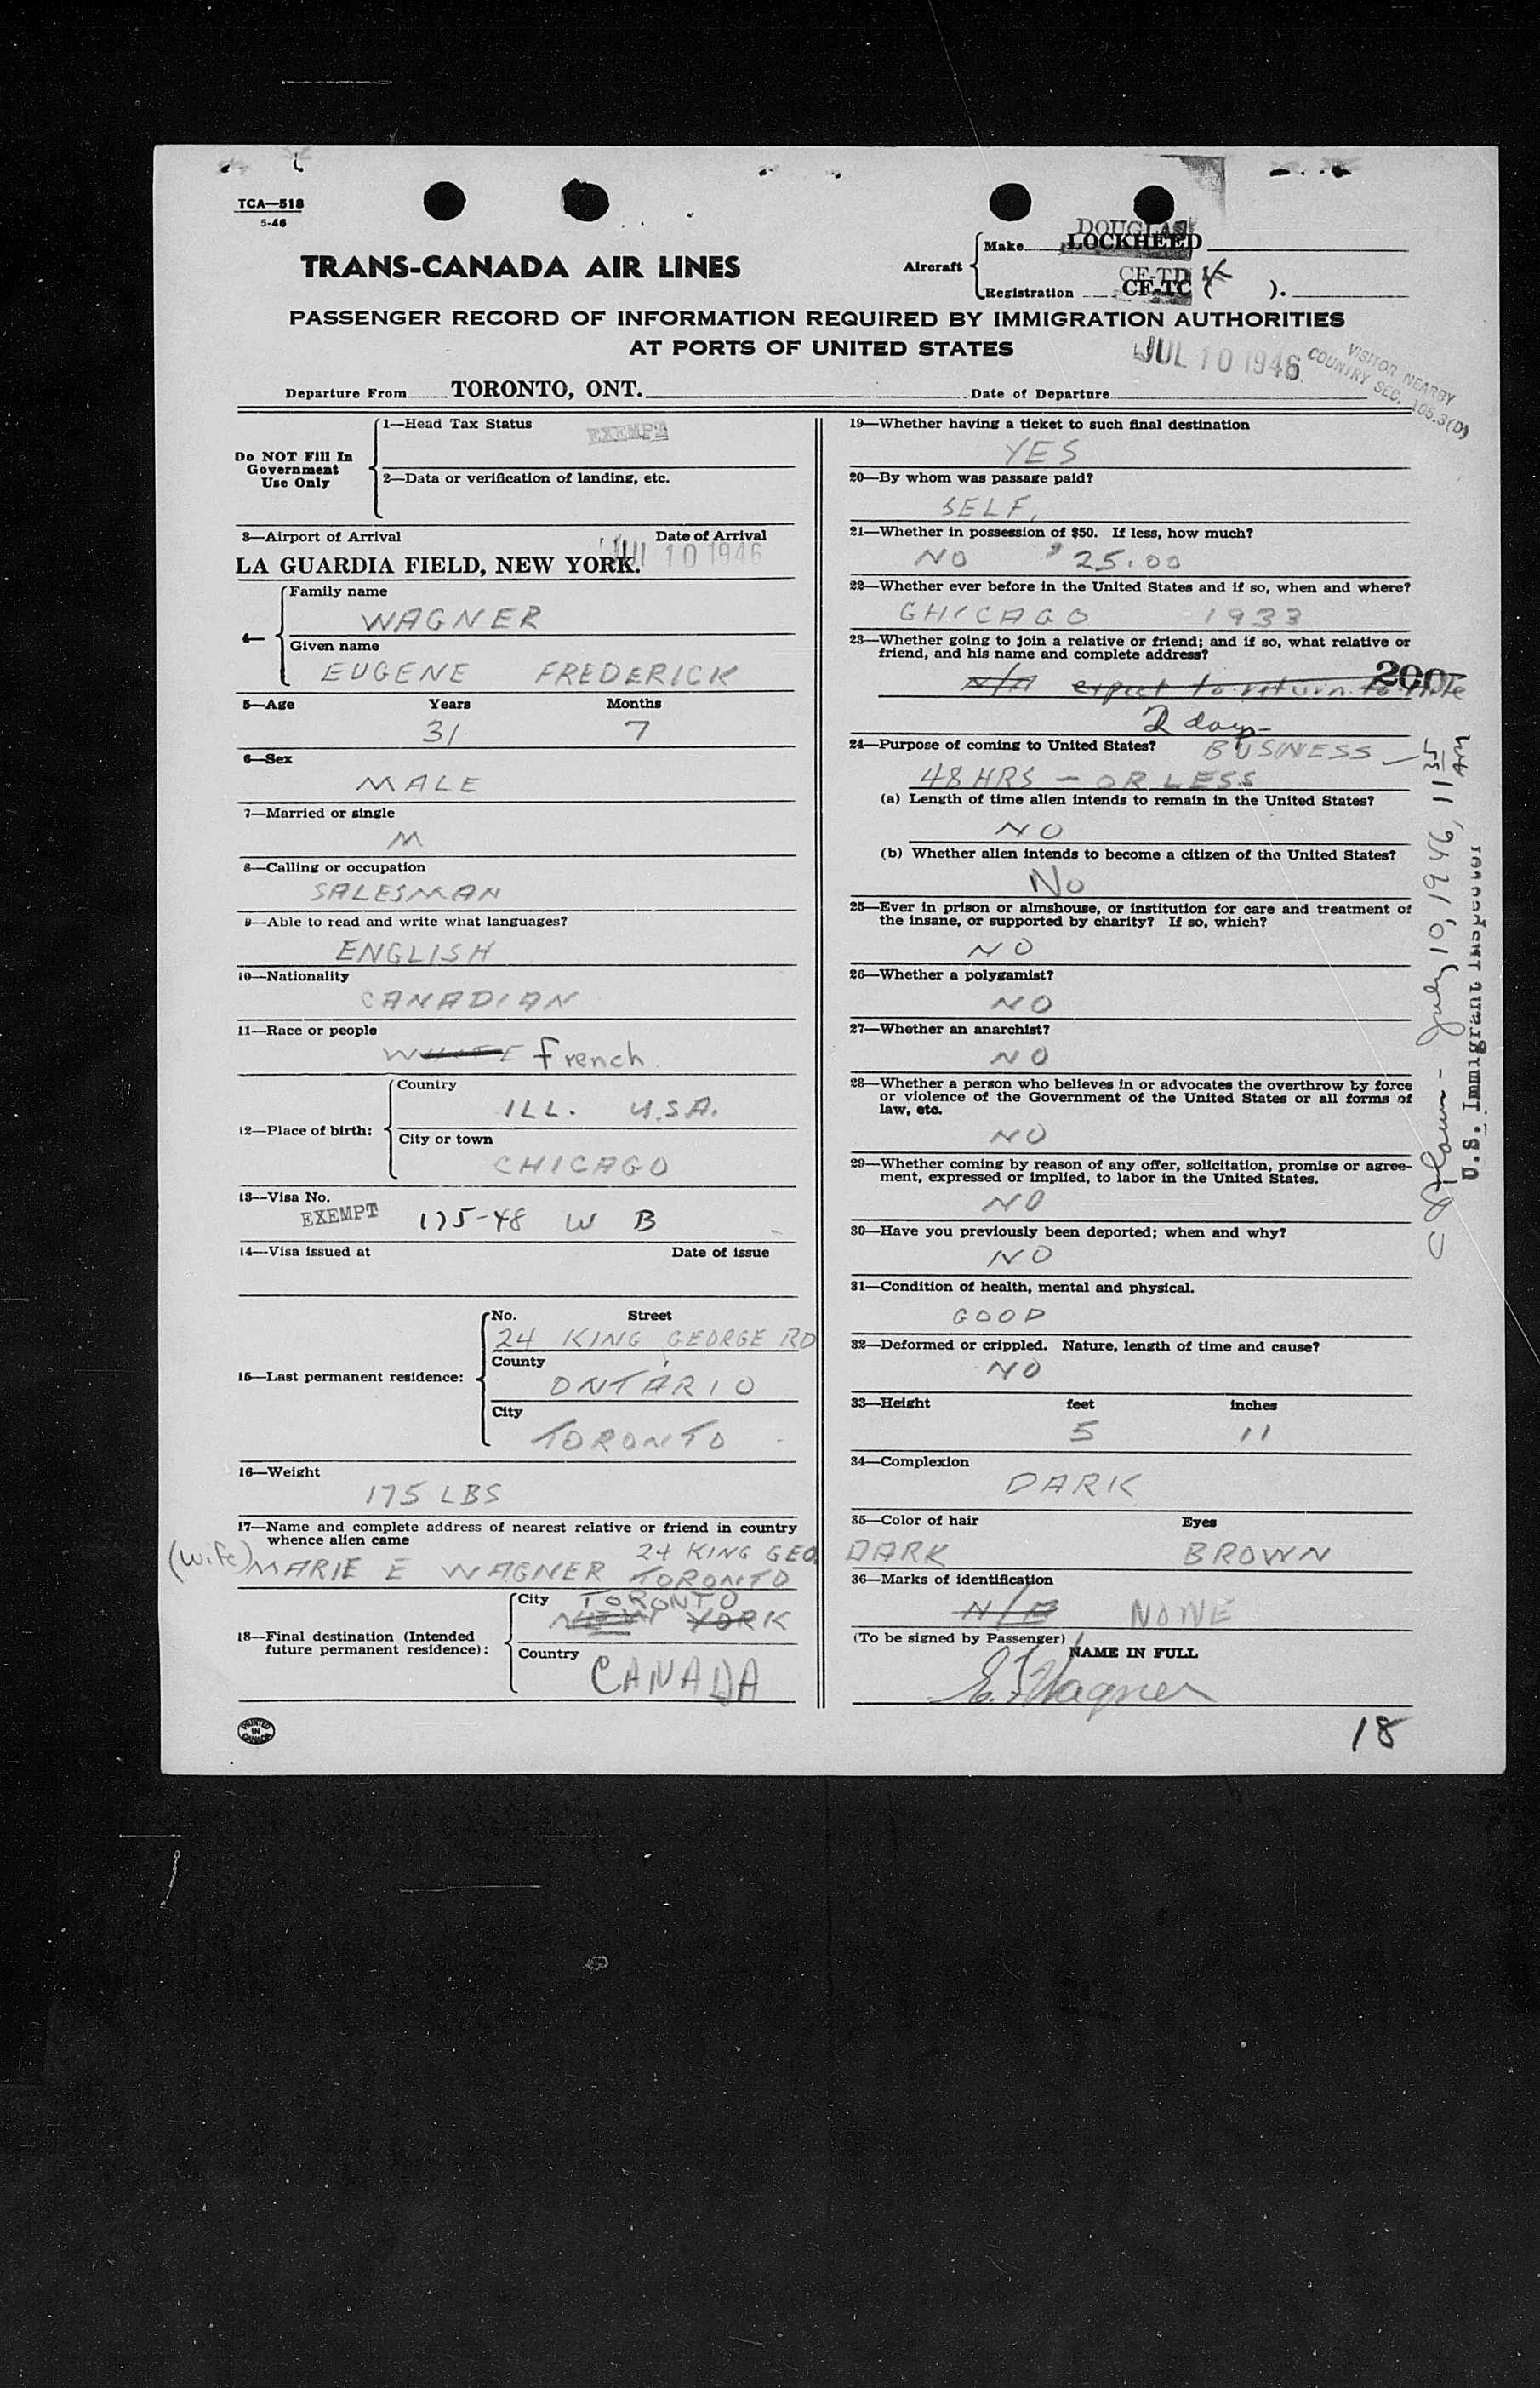 TCA—518
5-46
DOUGLAS
Make LOCKHEED
TRANS-CANADA AIR LINES
Aircraft
CF-TD K
Registration CF-TC ( ).
PASSENGER RECORD OF INFORMATION REQUIRED BY IMMIGRATION AUTHORITIES
AT PORTS OF UNITED STATES
JUL 10 1946
VISITOR NEARBY
COUNTRY SEC. 105.3(D)
Departure From TORONTO, ONT. Date of Departure
Do NOT Fill In
Government
Use Only
1—Head Tax Status
EXEMPT
2—Data or verification of landing, etc.
3—Airport of Arrival Date of Arrival
LA GUARDIA FIELD, NEW YORK. JUL 10 1946
4—
Family name
WAGNER
Given name
EUGENE FREDERICK
5—Age Years Months
31 7
6—Sex
MALE
7—Married or single
M
8—Calling or occupation
SALESMAN
9—Able to read and write what languages?
ENGLISH
10—Nationality
CANADIAN
11—Race or people
WHITE French
12—Place of birth:
Country
ILL. U.S.A.
City or town
CHICAGO
13—Visa No.
EXEMPT 175-48 W B
14—Visa issued at Date of issue
15—Last permanent residence:
No. Street
24 KING GEORGE RD
County
ONTARIO
City
TORONTO
16—Weight
175 LBS
17—Name and complete address of nearest relative or friend in country
whence alien came
24 KING GEO
(Wife) MARIE E WAGNER TORONTO
18—Final destination (Intended
future permanent residence):
City TORONTO
NEW YORK
Country
CANADA
PRINTED
IN
CANADA
19—Whether having a ticket to such final destination
YES
20—By whom was passage paid?
SELF.
21—Whether in possession of $50. If less, how much?
NO $25.00
22—Whether ever before in the United States and if so, when and where?
CHICAGO 1933
23—Whether going to join a relative or friend; and if so, what relative or
friend, and his name and complete address?
200
N/A expect to return to
2 days
24—Purpose of coming to United States? BUSINESS —
48 HRS — OR LESS
(a) Length of time alien intends to remain in the United States?
NO
(b) Whether alien intends to become a citizen of the United States?
No
25—Ever in prison or almshouse, or institution for care and treatment of
the insane, or supported by charity? If so, which?
NO
26—Whether a polygamist?
NO
27—Whether an anarchist?
NO
28—Whether a person who believes in or advocates the overthrow by force
or violence of the Government of the United States or all forms of
law, etc.
NO
29—Whether coming by reason of any offer, solicitation, promise or agree-
ment, expressed or implied, to labor in the United States.
NO
30—Have you previously been deported; when and why?
NO
31—Condition of health, mental and physical.
GOOD
32—Deformed or crippled. Nature, length of time and cause?
NO
33—Height feet inches
5 11
34—Complexion
DARK
35—Color of hair Eyes
DARK BROWN
36—Marks of identification
N/A NONE
(To be signed by Passenger)
NAME IN FULL
E. F. Wagner
18
July 10, 1946, 11 55 AM
U.S. Immigrant Inspector